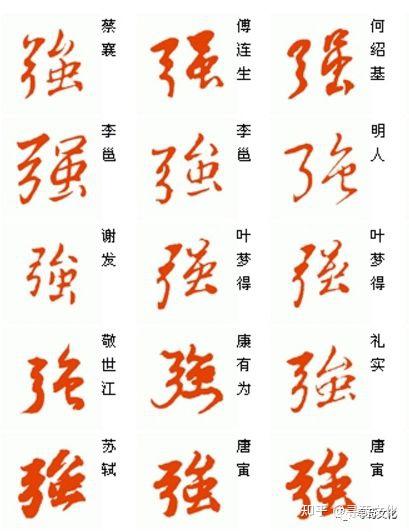 強 蔡襄
强 傅连生
强 何绍基
强 李邕
強 李邕
強 明人
強 谢发
强 叶梦得
强 叶梦得
強 敬世江
強 康有为
強 礼实
強 苏轼
強 唐寅
強 唐寅
知乎